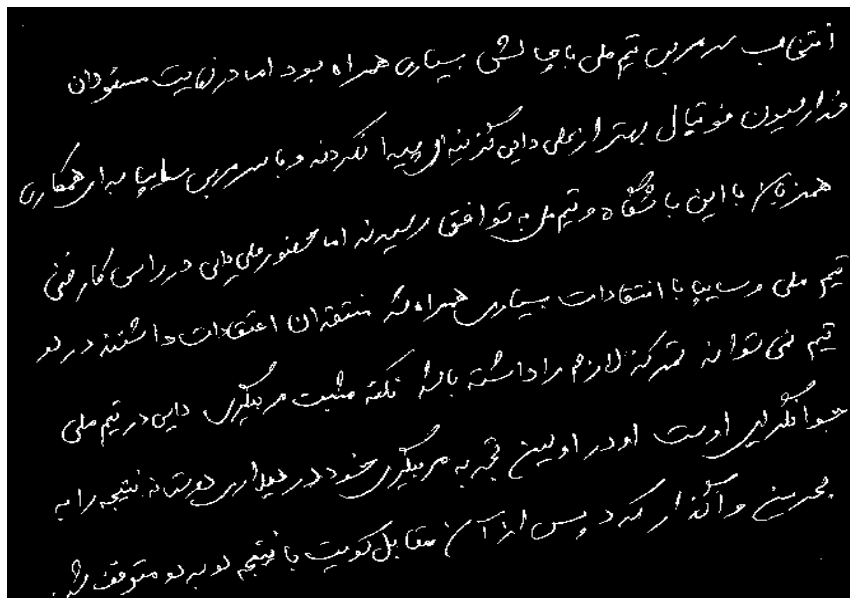 انتخاب سرمربی تیم ملی با چالشی بسیاری همراه بود اما در نهایت مسئولان
فدارسیون فوتبال بهتر از علی دایی گزینه‌ای پیدا نکردند و با سرمربی سایپا برای همکاری
همزمان با این باشگاه و تیم ملی به توافق رسیدند اما حضور علی دایی در راس کار فنی
تیم ملی و سایپا با انتقادات بسیاری همراه شد منتقدان اعتقادات داشتند در دو
تیم نمی تواند تمرکز لازم را داشته باشد نکته مثبت مربیگری دایی در تیم ملی
جوانگرایی اوست او در اولین تجربه مربیگری خود در دیداری دوستانه نتیجه را به
بحرین واگذار کرد و پس از آن مقابل کویت با نتیجه دو بر دو متوقف شد.